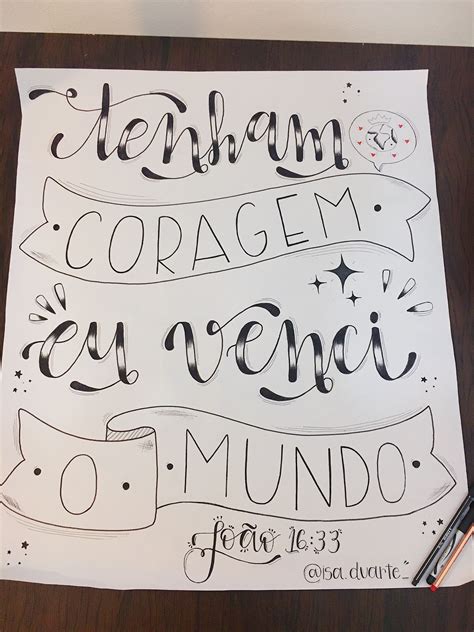 tenham
CORAGEM
eu venci
O MUNDO
João 16:33
@isa.duarte_